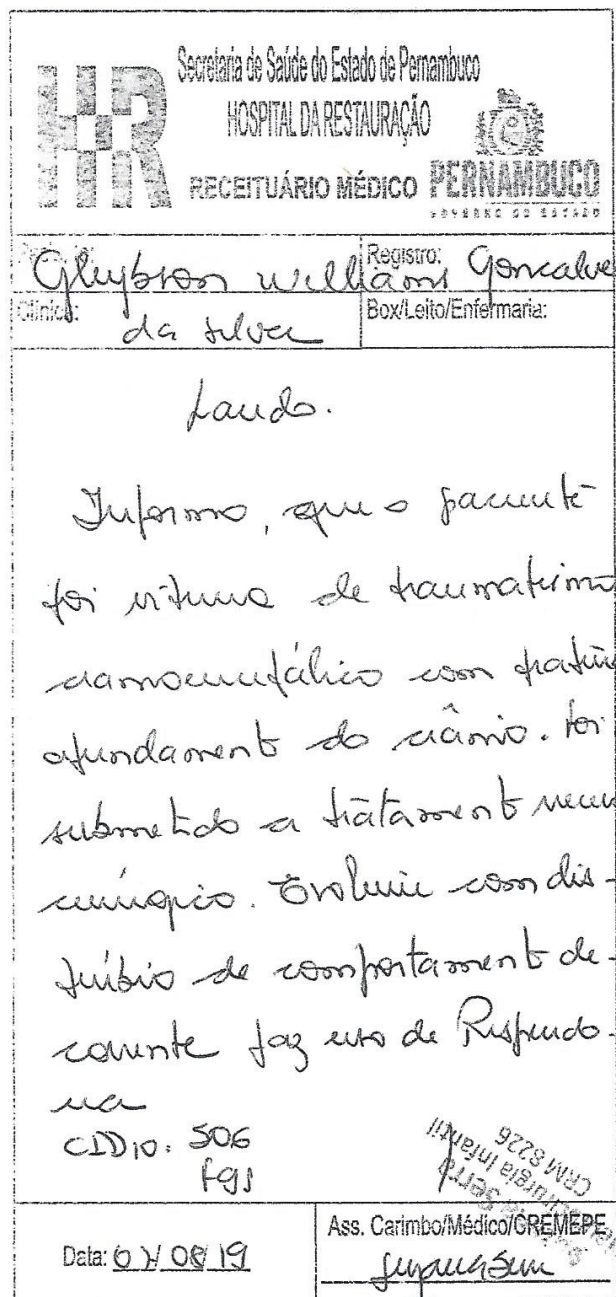 Secretaria de Saúde do Estado de Pernambuco
HOSPITAL DA RESTAURAÇÃO
HR
RECEITUÁRIO MÉDICO
PERNAMBUCO
GOVERNO DO ESTADO
Registro:
Gleybson Williams Goncalve
Clínica:
Box/Leito/Enfermaria:
da silva
Laudo.
Informo, que o paciente
foi vítima de traumatismo
cranioencefálico com fratura
afundamento do crânio. Foi
submetido a tratamento neuro
cirúrgico. Evoluiu com dis-
túrbio de comportamento de-
corrente faz uso de Risperido-
na
CID10: S06
F91
Serra
Neurocirurgia Infantil
CRM 8226
Data: 07/08/19
Ass. Carimbo/Médico/CREMEPE